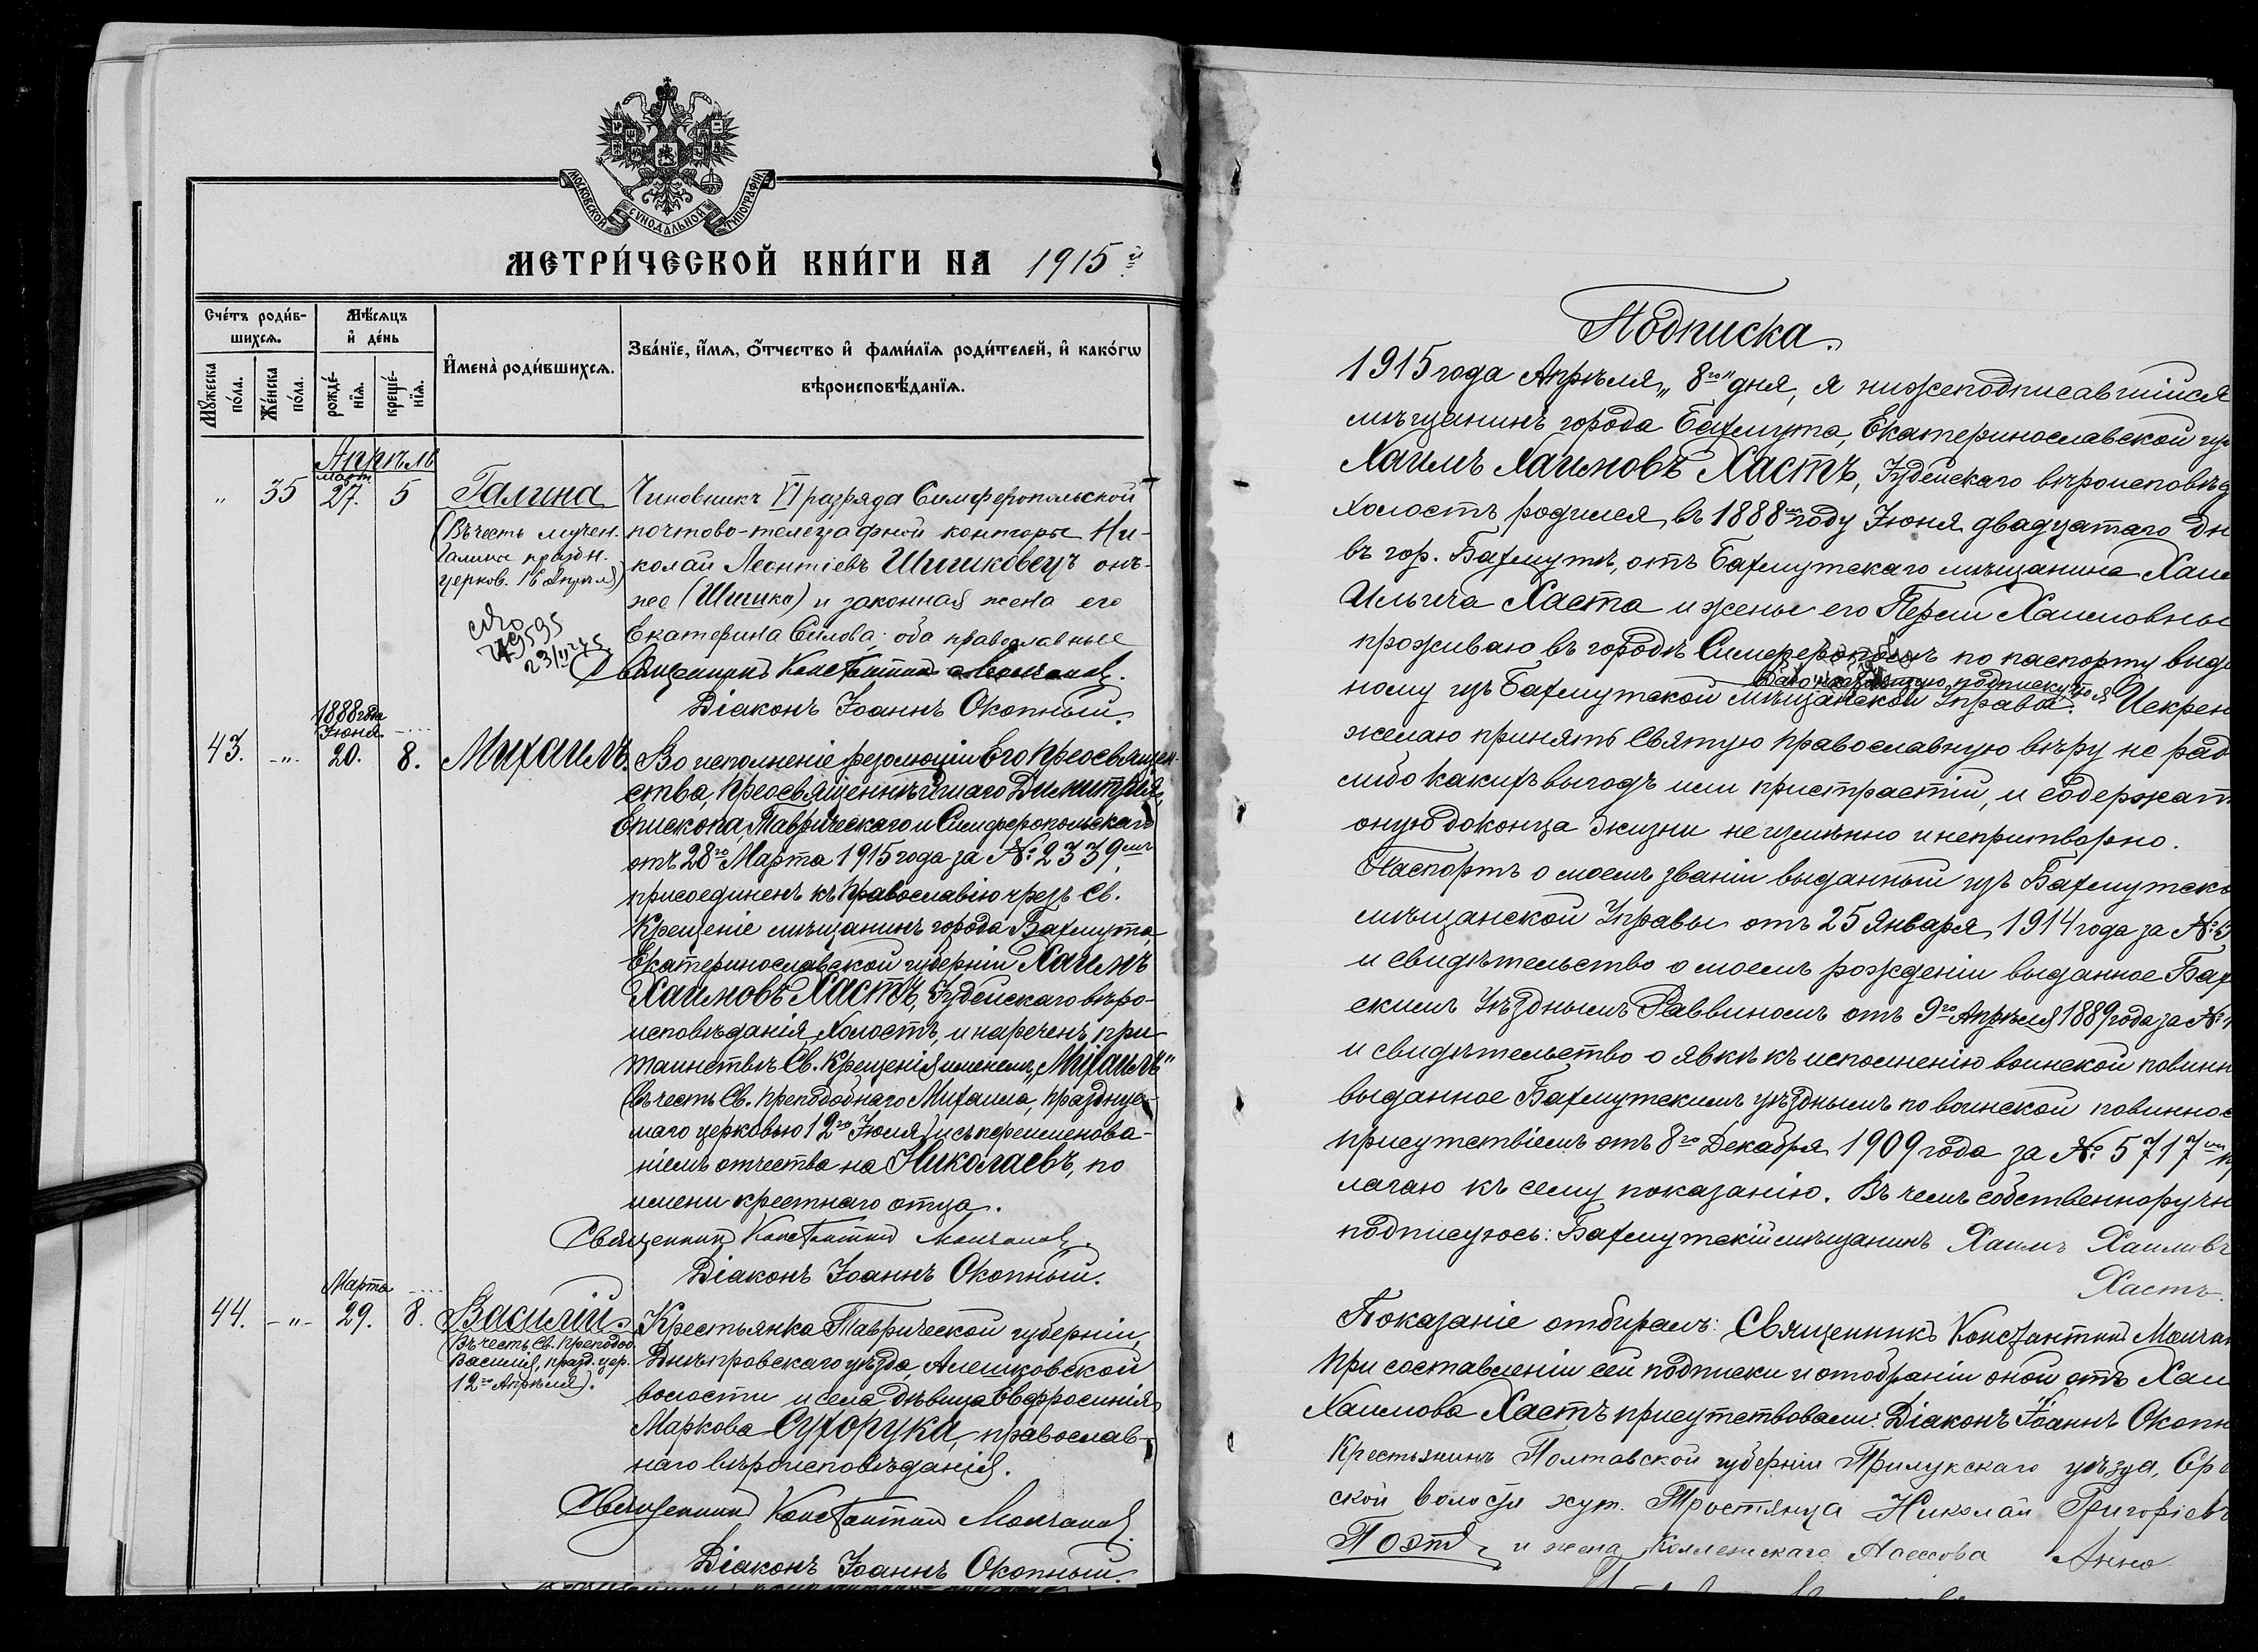 МОСКОВСКОЙ СѴНОДАЛЬНОЙ ТИПОГРАФІИ
МЕТРИ́ЧЕСКОЙ КНИ́ГИ НА 1915 й
Сче́тъ роди́в-
шихся.
Мѣ́сяцъ
и҆ де́нь
Му́жеска
по́ла.
Же́нска
по́ла.
рожде́-
нїя.
креще́-
нїя.
И҆мена̀ роди́вшихся.
Зва́нїе, и҆́мя, ѻ҆́тчество и҆ фами́лїя роди́телей, и҆ како́гѡ
вѣроисповѣ́данїя.
Апрѣль
март
" 35 27. 5 Галина
(Въ честь мучен.
Галины праздн.
церков. 16 Апрѣля)
23/II
Чиновникъ VI разряда Симферопольской
почтово-телеграфной конторы Ни-
колай Леонтіевъ Шишковецъ онъ-
же (Шишко) и законная жена его
Екатерина Силова; оба православные
Священникъ Константинъ Молчановъ.
Діаконъ Іоаннъ Окопный.
1888 года
Іюня
43. -"- 20. 8. Михаилъ.
Во исполненіе резолюціи Его Преосвящен-
ства, Преосвященнѣйшаго Димитрія,
Епископа, Таврическаго и Симферопольскаго
отъ 28го Марта 1915 года за № 2339мъ
присоединенъ къ Православію чрезъ Св.
Крещеніе мѣщанинъ города Бахмута,
Екатеринославской губерніи Хаимъ
Хаимовъ Хастъ, Іудейскаго вѣро-
исповѣданія, холостъ, и нареченъ при
таинствѣ Св. Крещенія именемъ „Михаилъ"
(въ честь Св. преподобнаго Михаила, празднуе-
маго церковью 12го Іюля) и съ переименова-
ніемъ отчества на Николаевъ, по
имени крестнаго отца.
Священникъ Константинъ Молчановъ.
Діаконъ Іоаннъ Окопный.
Марта
44. -"- 29. 8. Василій.
(Въ честь Св. преподоб.
Василія, празд. цер.
12го Апрѣля).
Крестьянка Таврической губерніи,
Днѣпровскаго уѣзда, Алешковской
волости и села дѣвица Евфросинія
Маркова Сухорука, православ-
наго вѣроисповѣданія.
Священникъ Константинъ Молчановъ.
Діаконъ Іоаннъ Окопный.
Подписка.
1915 года Апрѣля „8го" дня, я нижеподписавшійся
мѣщанинъ города Бахмута, Екатеринославской гу
Хаимъ Хаимовъ Хастъ, Іудейскаго вѣроисповѣд
холостъ, родился въ 1888мъ году Іюня двадцатаго дн
въ гор. Бахмутѣ, отъ Бахмутскаго мѣщанина Хаи
Ильича Хаста и жены его Перли Хаимовны
проживаю въ городѣ Симферополѣ по паспорту выда
подписку я
ному изъ Бахмутской мѣщанской Управы. Искрен
желаю принять Святую Православную вѣру не рад
либо какихъ выгодъ или пристрастій, и содержат
оную до конца жизни неизмѣнно и непритворно.
Паспортъ о моемъ званіи выданный изъ Бахмутско
мѣщанской Управы отъ 25 Января 1914 года за №
и свидѣтельство о моемъ рожденіи выданное Бах
скимъ Уѣзднымъ Раввиномъ отъ 9го Апрѣля 1889 года за №
и свидѣтельство о явкѣ къ исполненію воинской повинн
выданное Бахмутскимъ уѣзднымъ по воинской повиннос
присутствіемъ отъ 8го Декабря 1909 года за № 5717мъ
лагаю къ сему показанію. Въ чемъ собственноручн
подписуюсь: Бахмутскій мѣщанинъ Хаимъ Хаимовъ
Хастъ.
Показаніе отбиралъ: Священникъ Константинъ Молчан
При составленіи сей подписки и отобраніи оной отъ Хаи
Хаимова Хастъ присутствовали: Діаконъ Іоаннъ Окопн
Крестьянинъ Полтавской губерніи Прилукскаго уѣзда,
ской волости хут. Тростянца Николай Григоріевъ
Поэтъ и жена Анна